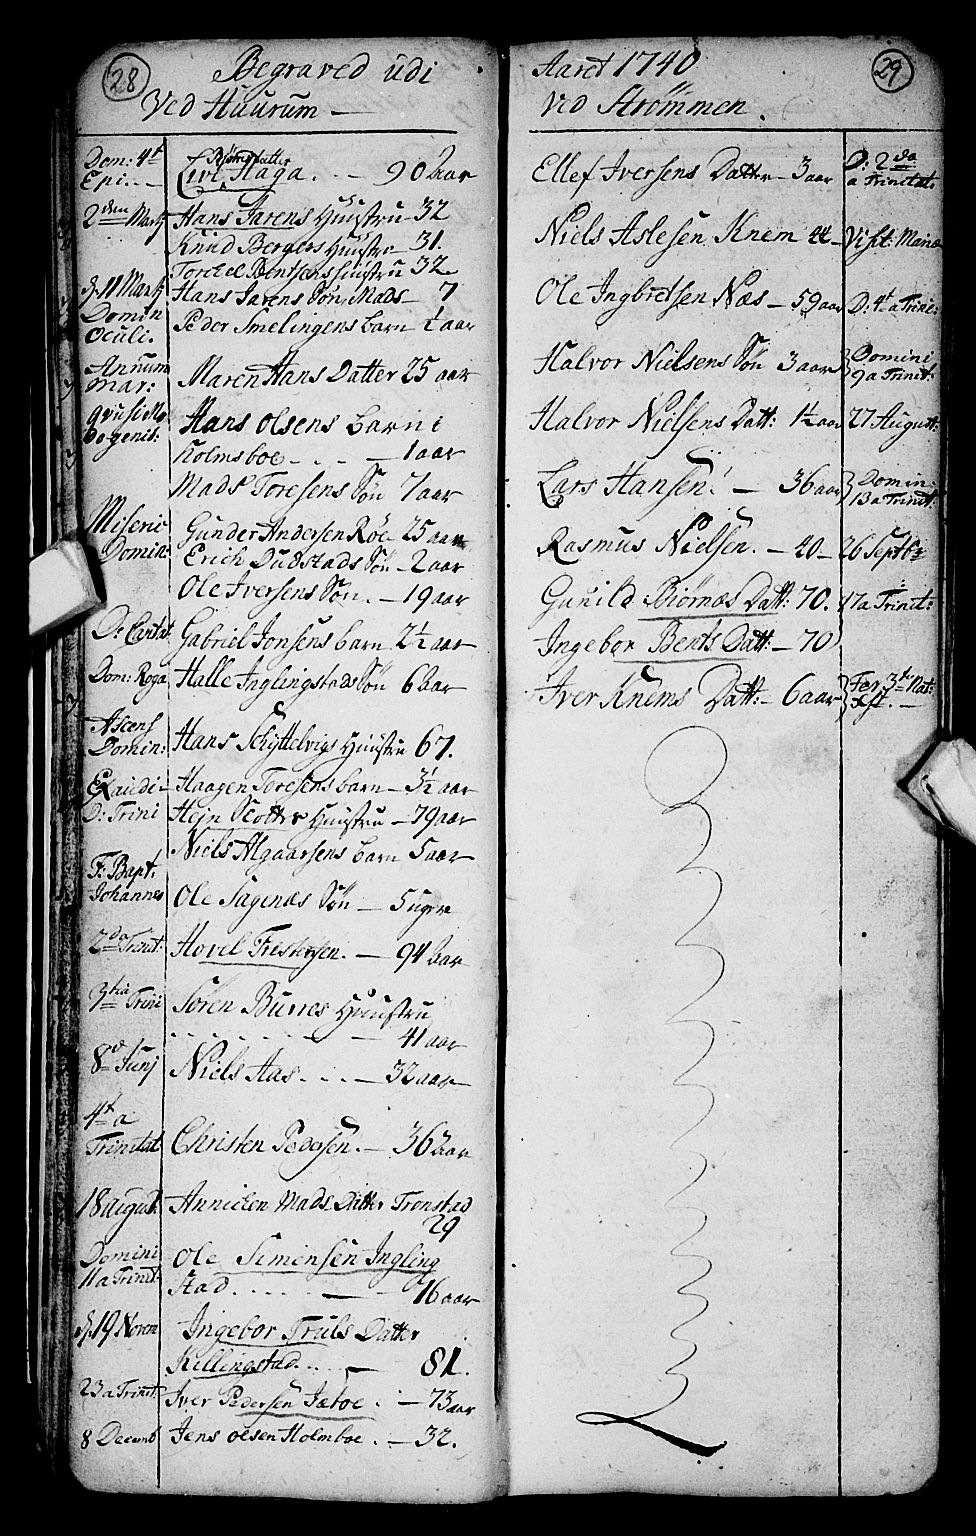 28
Begraved udi
Ved Huurum —
Dom: 4t
Epi. - -
Biørnsdatter
Live Haga. - - 90 Aar
2den Martj Hans Jarens Huustru 32
Knud Bergers Huustru — 31.
Torckel Bentsens huustru 32
d. 11 Martj Hans Jarens Søn Mads — 7
Domin
Oculi. Peder Smelingens barn ½ aar
Annum
Mar: Maren Hans Datter 25 aar
Qvasimo
dogenit: Hans Olsens Barn i
Holmsboe - - - — 1 aar
Mads Toresens Søn 7 aar
Miseric
Domin: Gunder Andersen Røe 25 aar
Erich Dudstads Søn — 2 aar
Ole Iversens Søn. — 19 aar
D: Cantat Gabriel Jonsens barn 2½ aar
Dom: Roga Halle Inglingstads Søn 6 aar
Ascens
Domin: Hans Schyttelvigs Huustru 67.
Exaudi — Haagen Toresens barn — 3½ aar
D: Trini Hejn Scotter Huustru — 79 aar
Niels Algaarsens barn 5 aar
F: Bapt:
Johannes Ole Sagenæs Søn — 5 uger
2da Trinit: Hovel Frestersen. — 94 Aar
3tia Trini Søren Burres Huustru
- - - - - — 41 aar
8d Junj Niels Aas. . . — 32 aar
4t a
Trinitat Christen Pedersen. — 36 Aar
18 august: Annichen Mads Datter Tronstad
29
Domini
11 a Trinit: Ole Simensen Ingling
stad. . . . . — 16 aar
d. 19 Novem Ingebor Truls Datter
Killingstad. . . — 81.
23 a Trinit: Iver Pedersen Jætoe : — 73 aar
8 Decemb Jens Olsen Holmboe . — 32.
29
Aaret 1740
Ved Strømmen.
Ellef Iversens Datter — 3 aar D: 2da
a Trinitat:
Niels Aslesen Knem 44 — Visit: Mariæ
Ole Ingbretsen Næs — 59 aar D: 4t a Trini:
Halvor Nielsens Søn 3 aar Domini
9 a Trinit:
Halvor Nielsens Datt: 1½ aar 27 August:
Lars Hansen! — 36 aar Domin:
13 a Trinit
Rasmus Nielsen. — 40 — 26 Septbr
Gunild Biørnæs Datt: 70. 17 a Trinit:
Ingebor Bents Datt: — 70
Iver Knems Datt: — 6 aar Fer. 3t Nat:
Xst. —